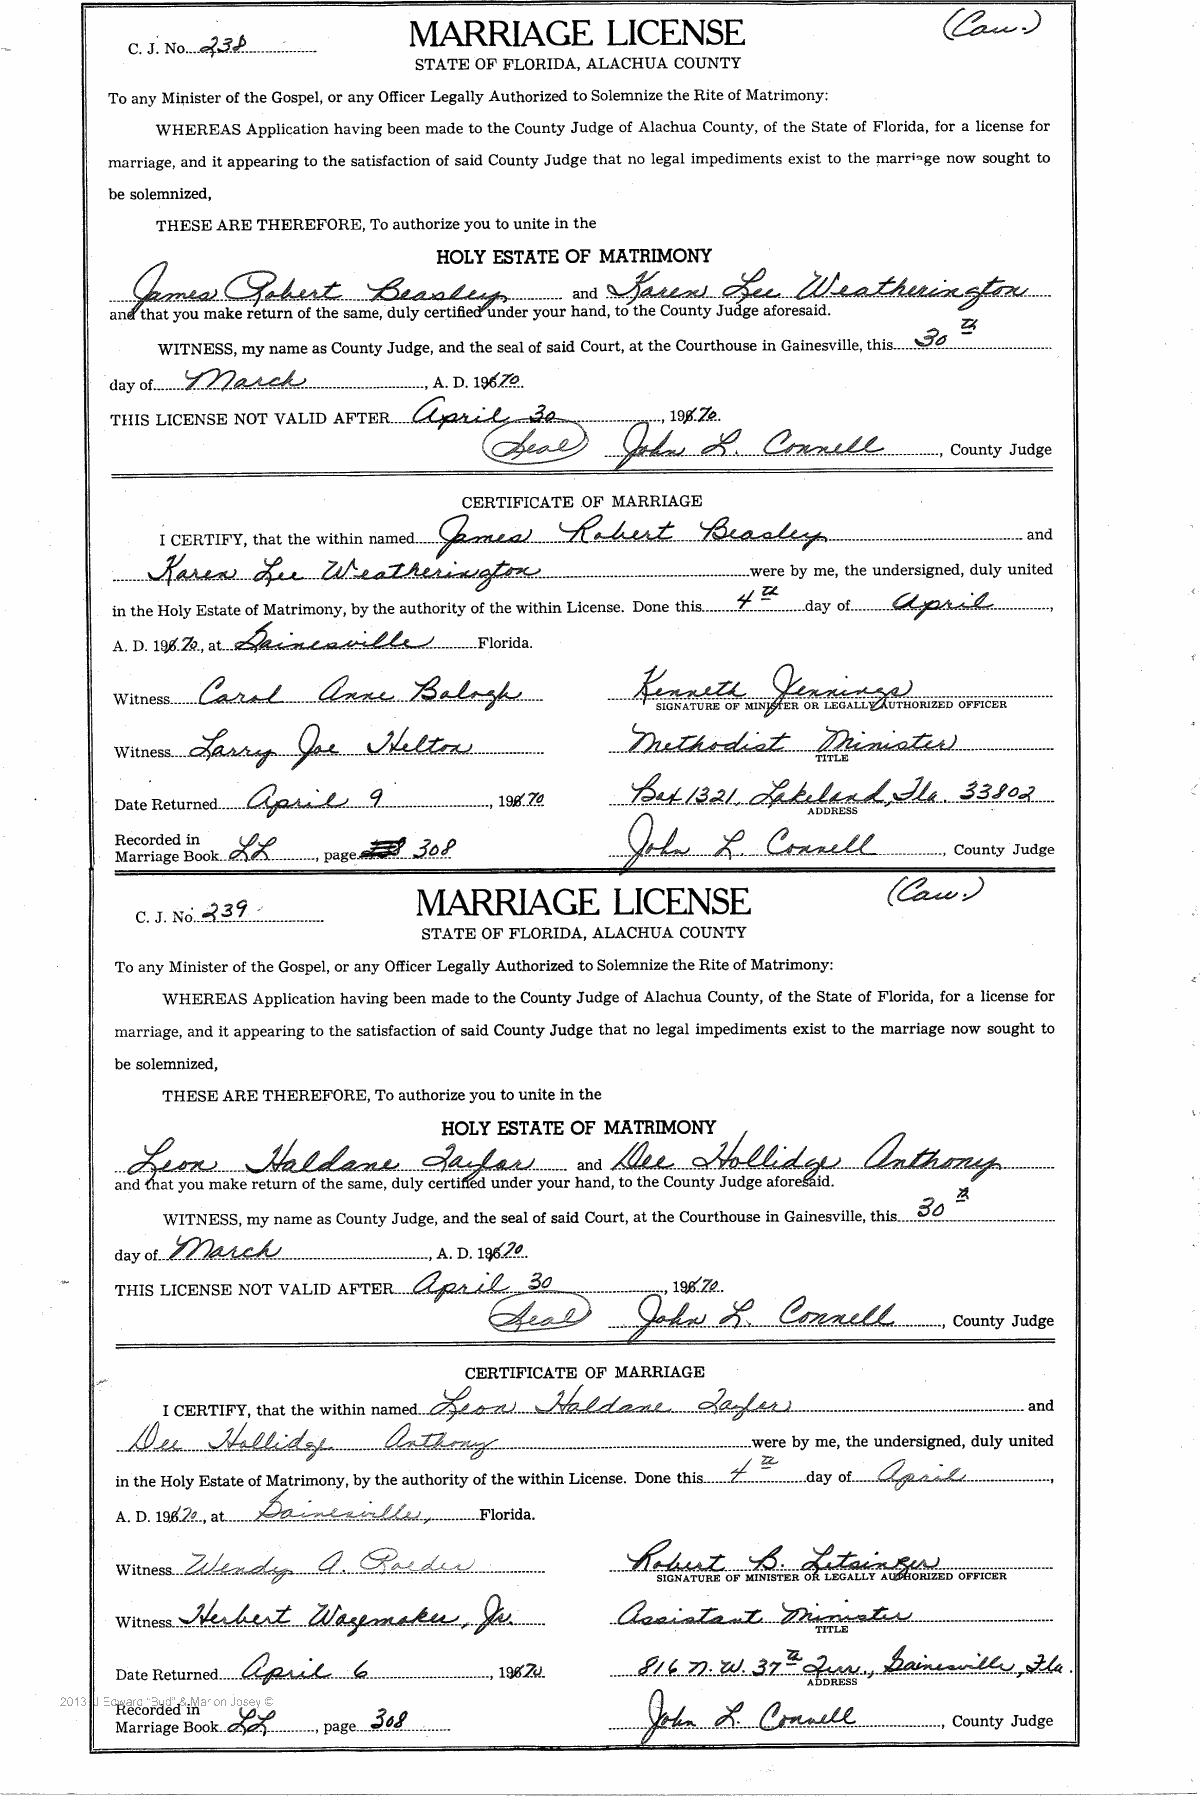 C. J. No. 238
MARRIAGE LICENSE
(Cau.)
STATE OF FLORIDA, ALACHUA COUNTY
To any Minister of the Gospel, or any Officer Legally Authorized to Solemnize the Rite of Matrimony:
WHEREAS Application having been made to the County Judge of Alachua County, of the State of Florida, for a license for
marriage, and it appearing to the satisfaction of said County Judge that no legal impediments exist to the marriage now sought to
be solemnized,
THESE ARE THEREFORE, To authorize you to unite in the
HOLY ESTATE OF MATRIMONY
James Robert Beasley and Karen Lee Weatherington
and that you make return of the same, duly certified under your hand, to the County Judge aforesaid.
WITNESS, my name as County Judge, and the seal of said Court, at the Courthouse in Gainesville, this 30th
day of March, A. D. 1970.
THIS LICENSE NOT VALID AFTER April 30, 1970.
(Seal) John L. Connell, County Judge
CERTIFICATE OF MARRIAGE
I CERTIFY, that the within named James Robert Beasley and
Karen Lee Weatherington were by me, the undersigned, duly united
in the Holy Estate of Matrimony, by the authority of the within License. Done this 4th day of April,
A. D. 1970, at Gainesville Florida.
Witness Carol Anne Balogh Kenneth Jennings
SIGNATURE OF MINISTER OR LEGALLY AUTHORIZED OFFICER
Witness Larry Joe Helton Methodist Minister
TITLE
Date Returned April 9, 1970 Box 1321, Lakeland, Fla. 33802
ADDRESS
Recorded in
Marriage Book LL, page 308 John L. Connell, County Judge
C. J. No. 239
MARRIAGE LICENSE
(Cau.)
STATE OF FLORIDA, ALACHUA COUNTY
To any Minister of the Gospel, or any Officer Legally Authorized to Solemnize the Rite of Matrimony:
WHEREAS Application having been made to the County Judge of Alachua County, of the State of Florida, for a license for
marriage, and it appearing to the satisfaction of said County Judge that no legal impediments exist to the marriage now sought to
be solemnized,
THESE ARE THEREFORE, To authorize you to unite in the
HOLY ESTATE OF MATRIMONY
Leon Haldane Taylor and Dee Hollidge Anthony
and that you make return of the same, duly certified under your hand, to the County Judge aforesaid.
WITNESS, my name as County Judge, and the seal of said Court, at the Courthouse in Gainesville, this 30th
day of March, A. D. 1970.
THIS LICENSE NOT VALID AFTER April 30, 1970.
(Seal) John L. Connell, County Judge
CERTIFICATE OF MARRIAGE
I CERTIFY, that the within named Leon Haldane Taylor and
Dee Hollidge Anthony were by me, the undersigned, duly united
in the Holy Estate of Matrimony, by the authority of the within License. Done this 4th day of April,
A. D. 1970, at Gainesville, Florida.
Witness Wendy A. Roeder Robert B. Letsinger
SIGNATURE OF MINISTER OR LEGALLY AUTHORIZED OFFICER
Witness Herbert Wagemaker, Jr. Assistant Minister
TITLE
Date Returned April 6, 1970 816 N. W. 37th Terr., Gainesville, Fla.
ADDRESS
2013 J Edward "Bud" & Marion Josey ©
Recorded in
Marriage Book LL, page 308 John L. Connell, County Judge